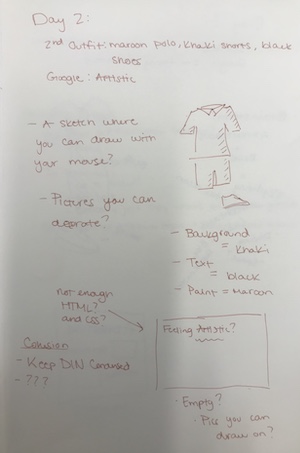 Day 2:
2nd Outfit: maroon polo, khaki shorts, black
shoes
Google: Artistic
- A sketch where
you can draw with
your mouse?
- Pictures you can
decorate?
- Background
= khaki
- Text
= black
- Paint = Maroon
not enough
HTML?
and CSS?
Feeling Artistic?
Conclusion
- Keep DIN Condensed
- ???
· Empty?
· Pics you can
draw on?